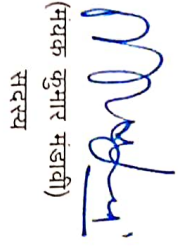 (मयंक कुमार मंडावी)
सदस्य